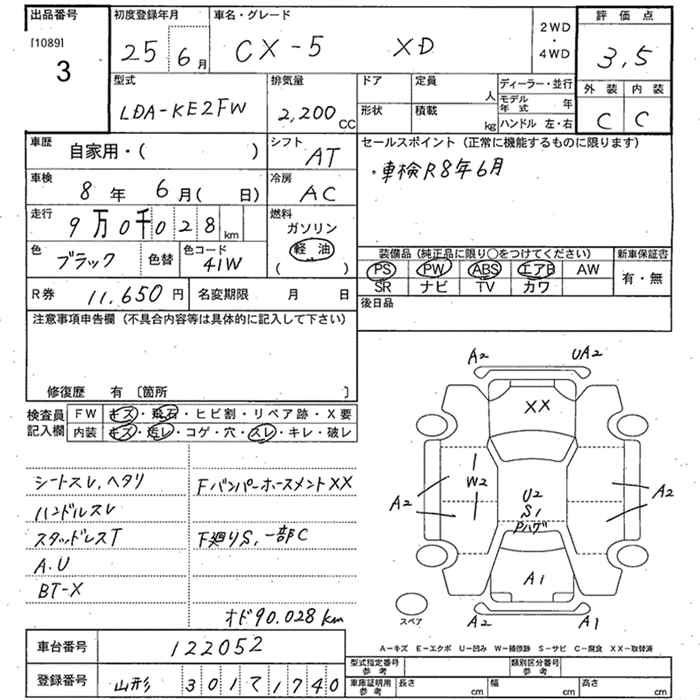 出品番号
[1089]
3
初度登録年月
25 6月
車名・グレード
CX-5 XD
2WD
・
4WD
評価点
3,5
外装 内装
C C
型式
LDA-KE2FW
排気量
2,200cc
ドア 定員 人
形状 積載 kg
ディーラー・並行
モデル年式 年
ハンドル 左・右
車歴
自家用・( )
シフト
AT
車検
8年 6月( 日)
冷房
AC
走行
9万0千028km
燃料
ガソリン
軽油
( )
色
ブラック
色替
色コード
41W
セールスポイント (正常に機能するものに限ります)
・車検R8年6月
装備品 (純正品に限り○をつけてください)
PS PW ABS エアB AW
SR ナビ TV カワ
新車保証書
有・無
R券 11,650円
名変期限 月 日
後日品
注意事項申告欄 (不具合内容等は具体的に記入して下さい)
修復歴 有 [箇所 ]
検査員記入欄
FW キズ・飛石・ヒビ割・リペア跡・X要
内装 キズ・汚レ・コゲ・穴・スレ・キレ・破レ
シートスレ,ヘタリ
ハンドルスレ
スタッドレスT
A.U
BT-X
FバンパーホースメントXX
F廻りS,一部C
オド90.028km
A2 UA2
XX
W2
A2
U2
S1
Pハゲ
A2
A1
スペア
A2 A1
A―キズ E―エクボ U―凹み W―補修跡 S―サビ C―腐食 XX―取替済
車台番号
122052
登録番号
山形 301て1740
型式指定番号
参考
類別区分番号
参考
車庫証明用
参考
長さ cm
幅 cm
高さ cm